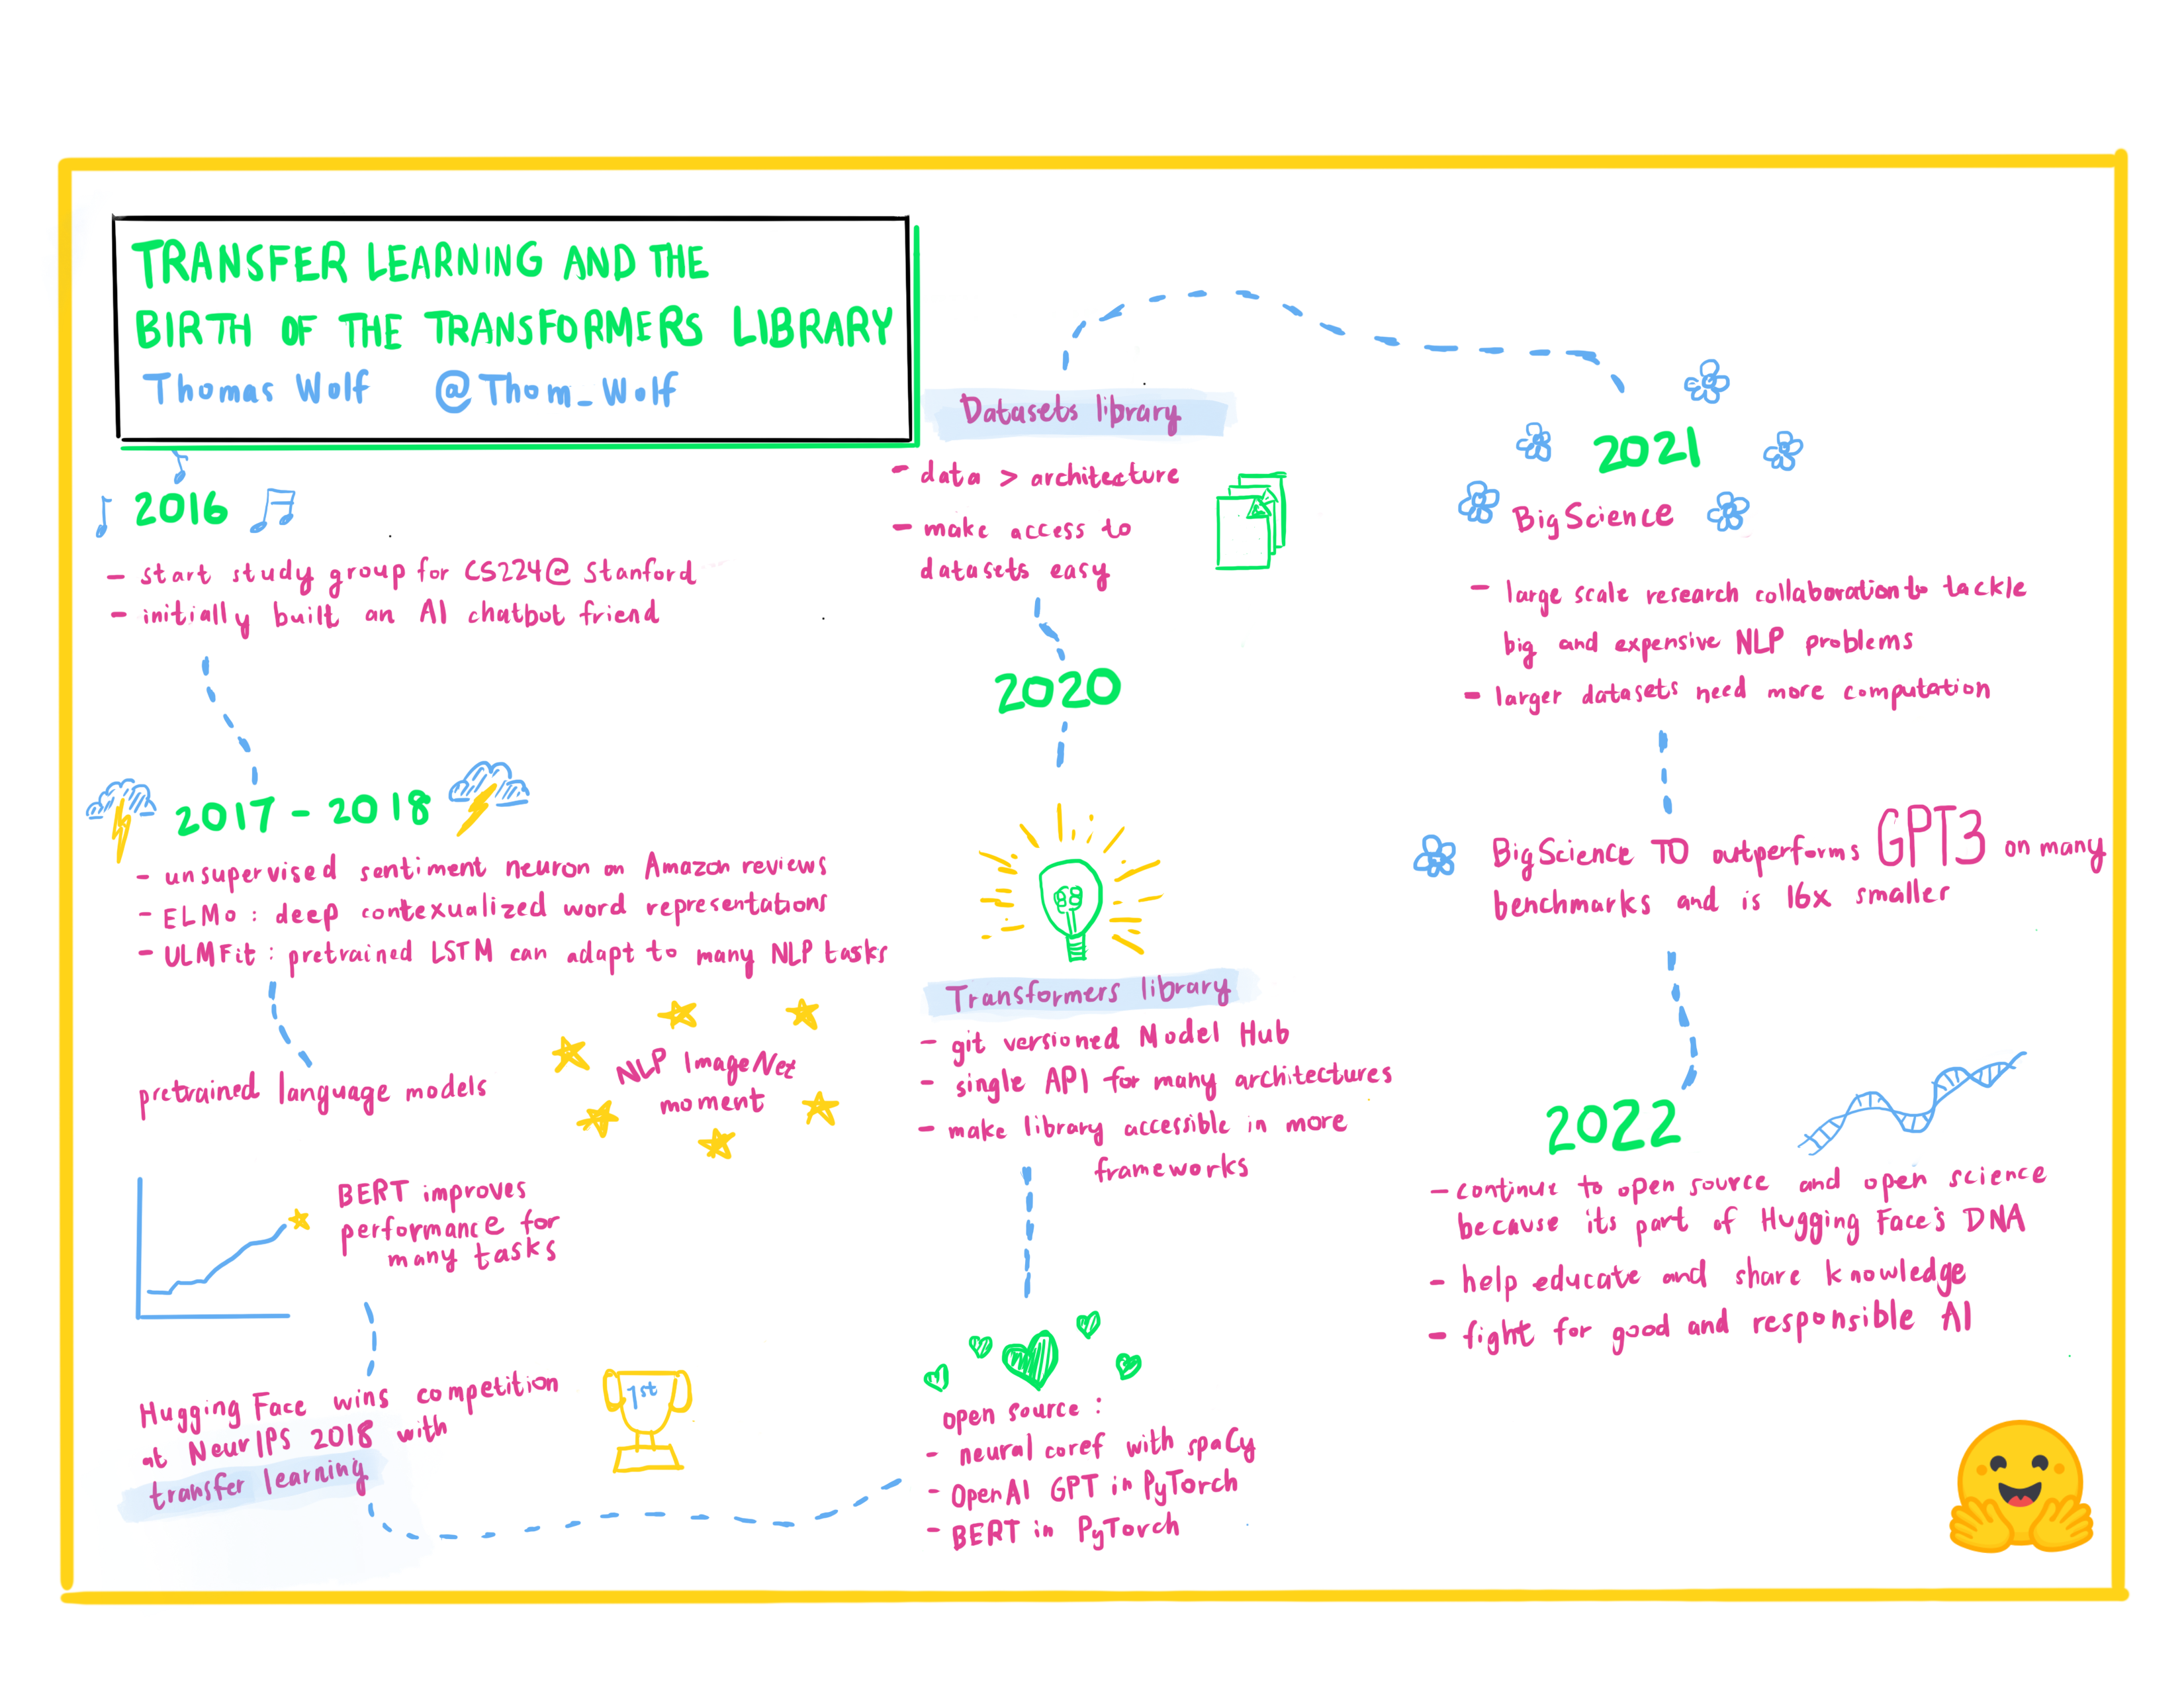 TRANSFER LEARNING AND THE
BIRTH OF THE TRANSFORMERS LIBRARY
Thomas Wolf @Thom_Wolf
2016
- start study group for CS224@ Stanford
- initially built an AI chatbot friend
2017 - 2018
- unsupervised sentiment neuron on Amazon reviews
- ELMo : deep contexualized word representations
- ULMFit : pretrained LSTM can adapt to many NLP tasks
pretrained language models
NLP ImageNet
moment
BERT improves
performance for
many tasks
Hugging Face wins competition
at NeurIPS 2018 with
transfer learning
1st
open source :
- neural coref with spaCy
- OpenAI GPT in PyTorch
- BERT in PyTorch
Transformers library
- git versioned Model Hub
- single API for many architectures
- make library accessible in more
frameworks
2020
Datasets library
- data > architecture
- make access to
datasets easy
2021
BigScience
- large scale research collaboration to tackle
big and expensive NLP problems
- larger datasets need more computation
BigScience T0 outperforms GPT3 on many
benchmarks and is 16x smaller
2022
- continue to open source and open science
because its part of Hugging Face's DNA
- help educate and share knowledge
- fight for good and responsible AI